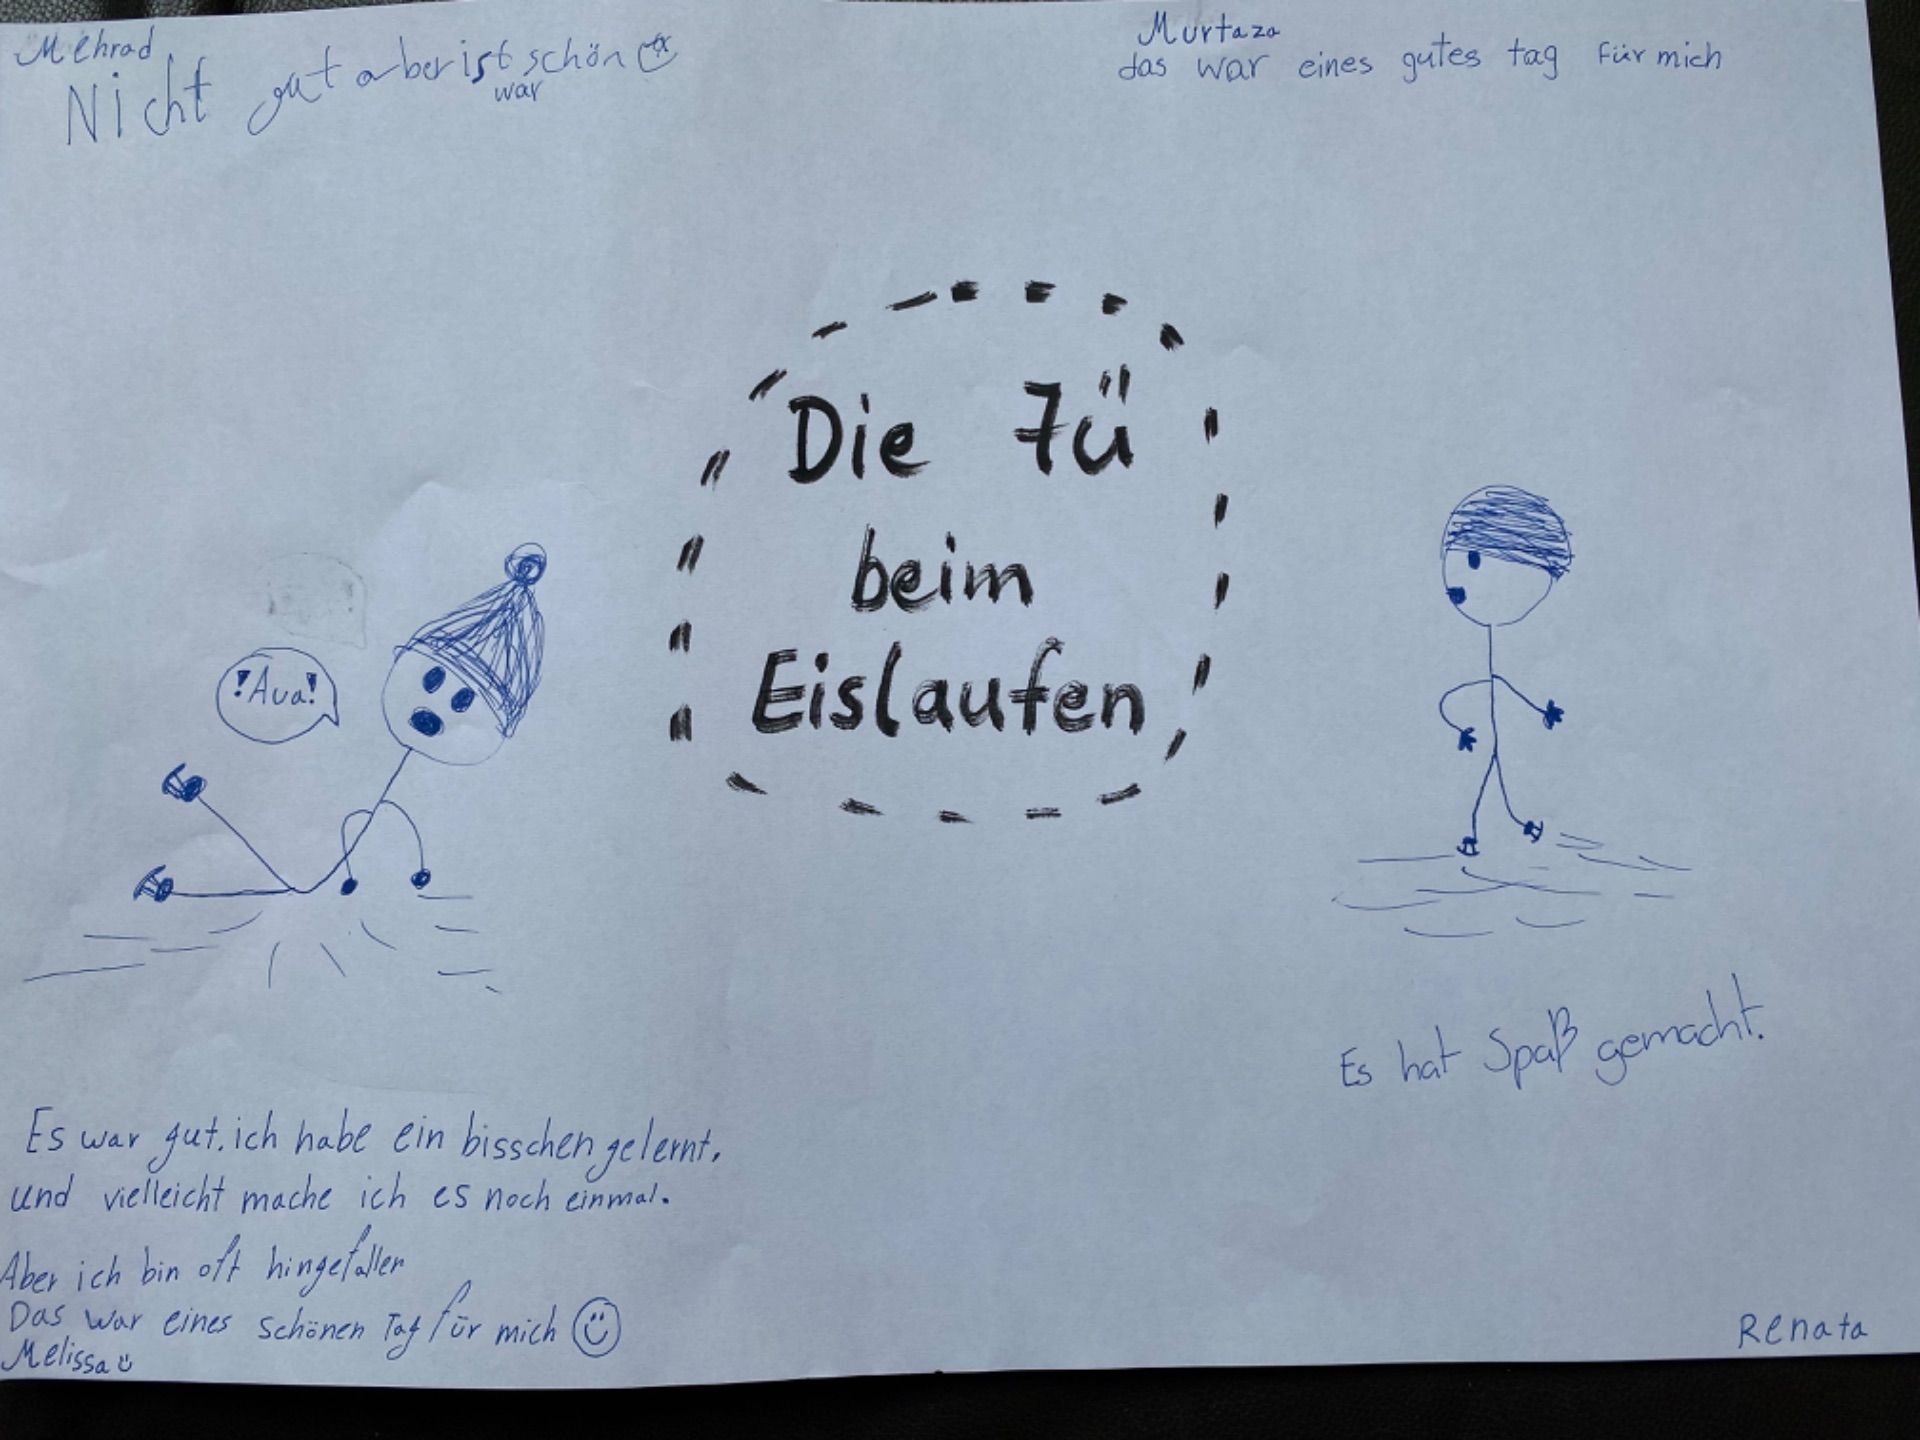 Mehrad
Nicht gut aber ist schön
war
Murtaza
das war eines gutes tag für mich
Die 7ü
beim
Eislaufen
!Aua!
Es hat Spaß gemacht.
Es war gut. ich habe ein bisschen gelernt,
und vielleicht mache ich es noch einmal.
Aber ich bin oft hingefallen
Das war eines schönen Tag für mich
Melissa
Renata